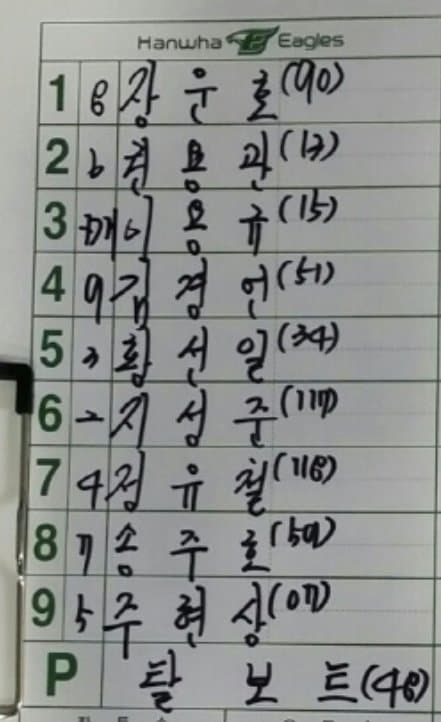 Hanwha Eagles
1 8 장 운 호 (90)
2 6 권 용 관 (13)
3 지메이 용 규 (15)
4 9 김 경 언 (51)
5 3 황 선 일 (34)
6 2 지 성 준 (117)
7 4 정 유 철 (118)
8 7 송 주 호 (59)
9 5 주 현 상 (07)
P 탈 보 트 (48)